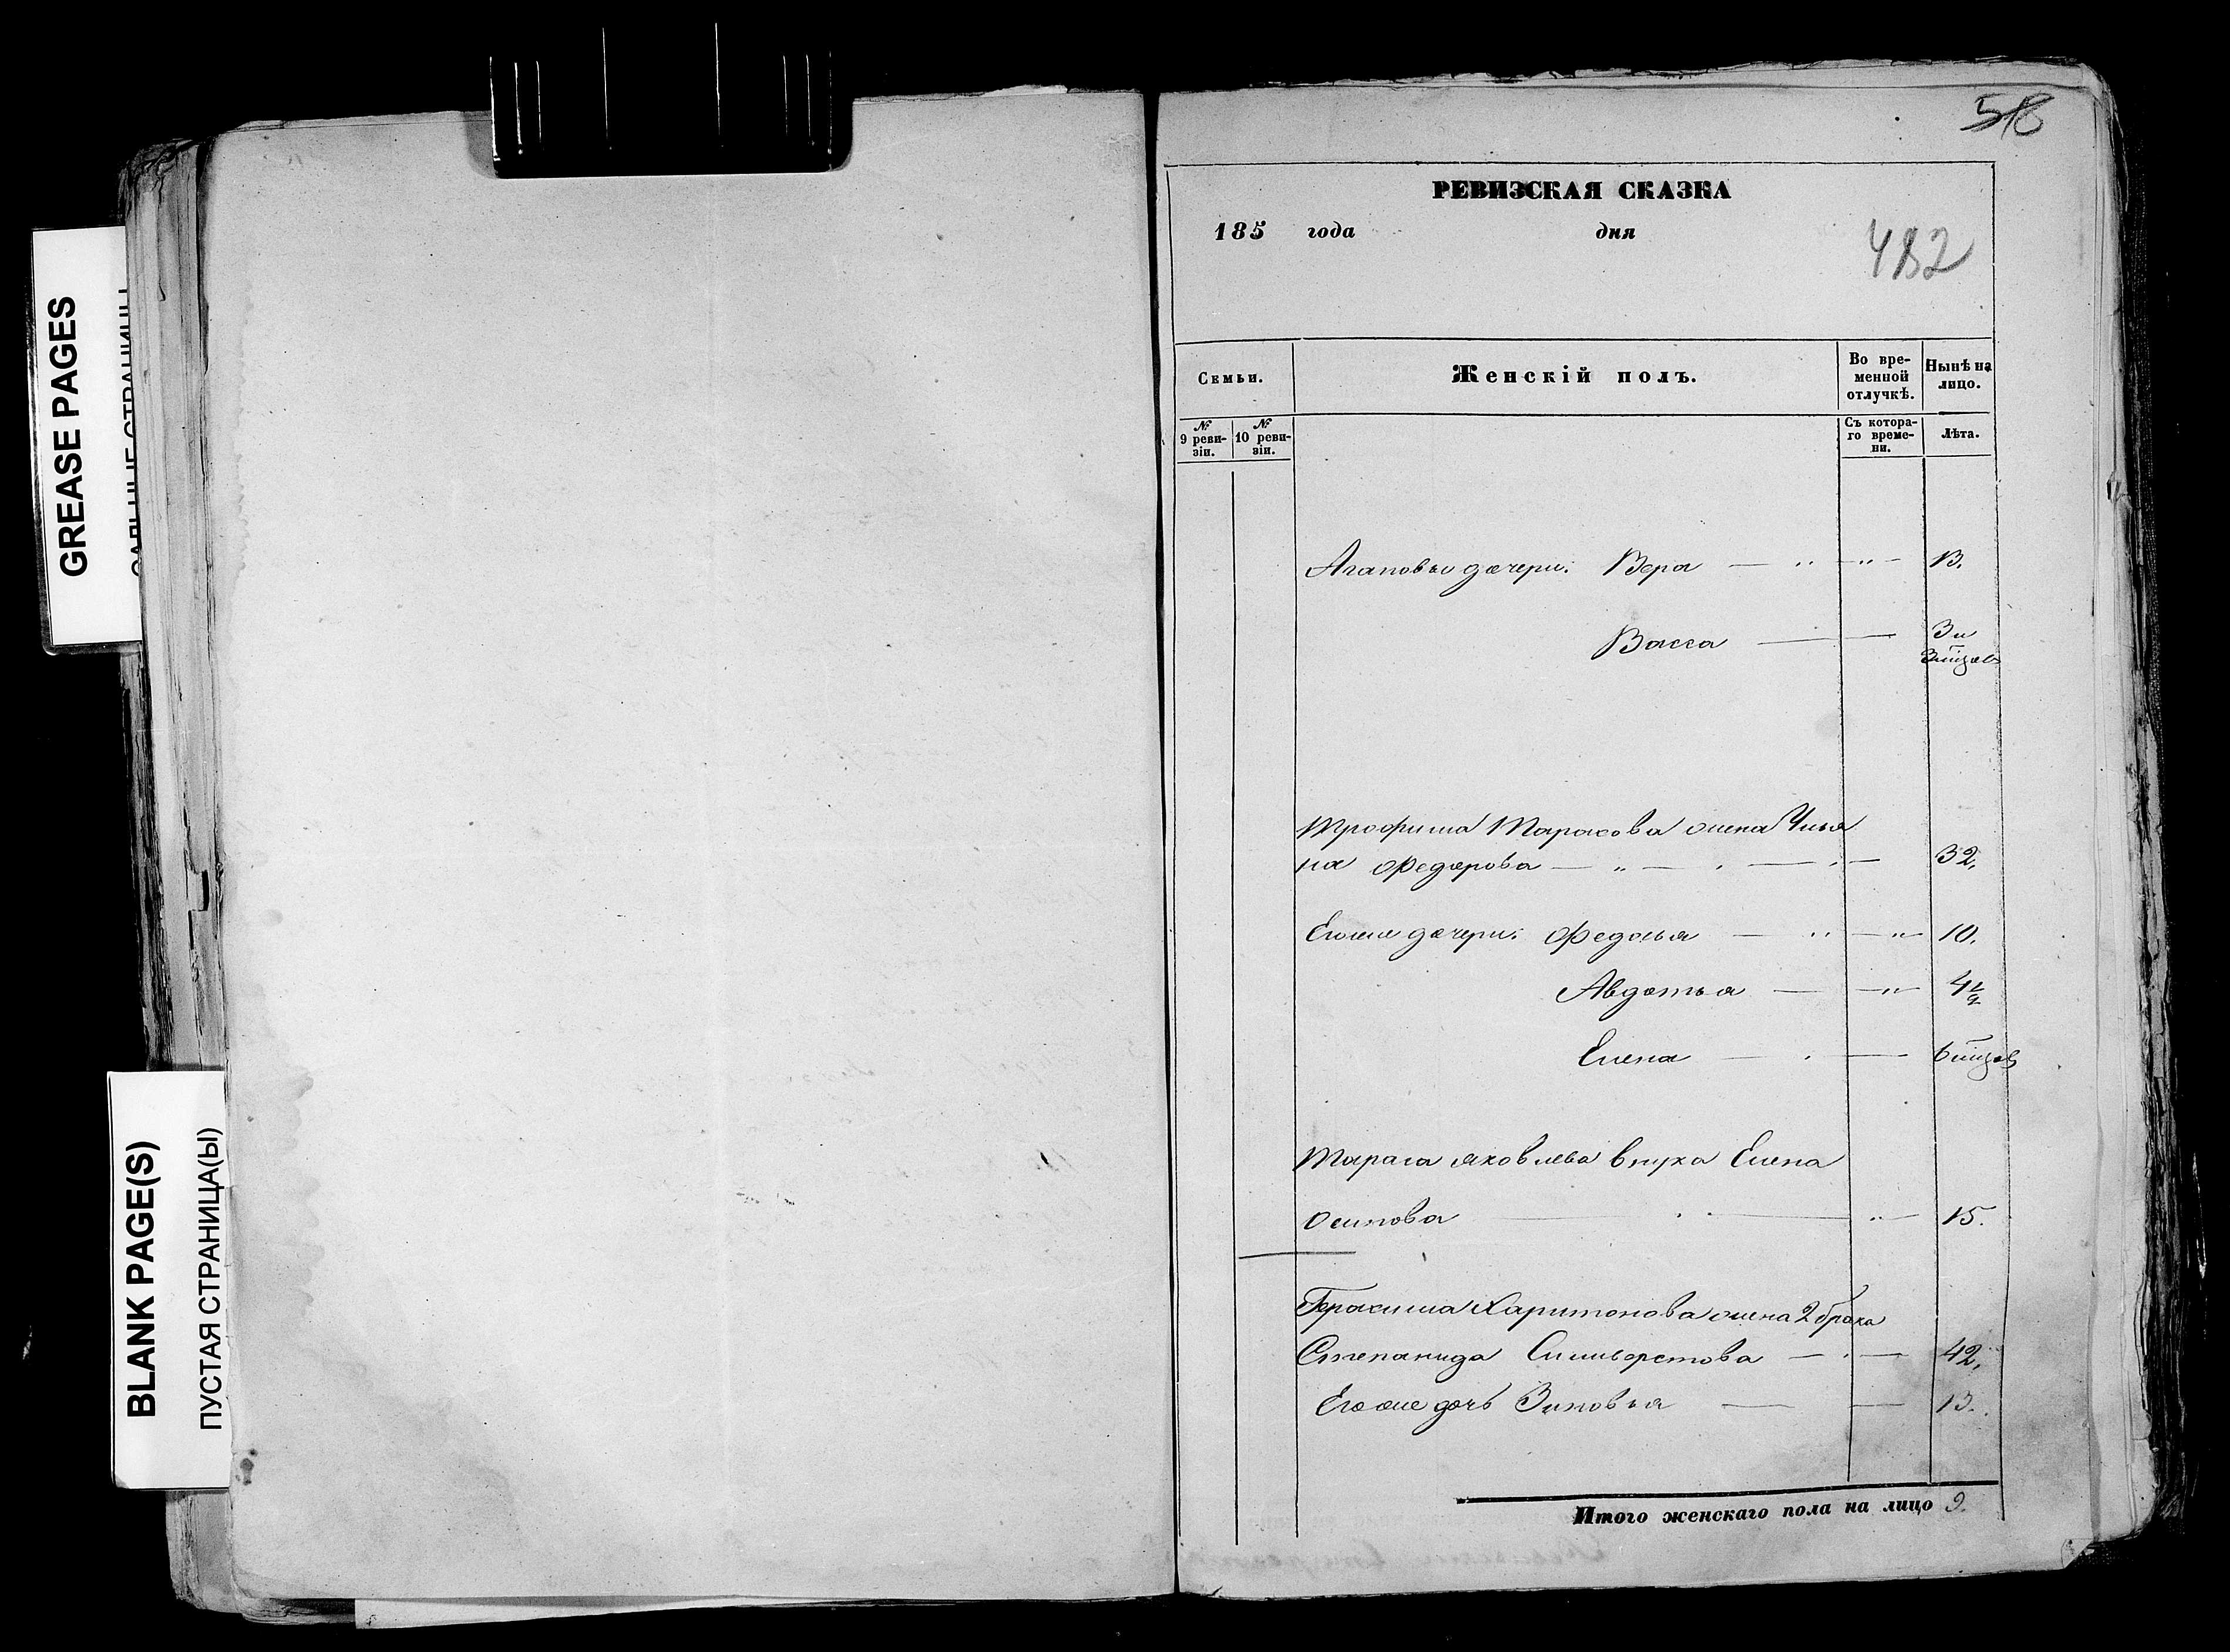 GREASE PAGES
BLANK PAGE(S)
ПУСТАЯ СТРАНИЦА(Ы)
РЕВИЗСКАЯ СКАЗКА
185 года дня
Семьи.
Женскій полъ.
Во вре-
менной
отлучкѣ.
Нынѣ на
лицо.
№
9 реви-
зіи.
№
10 реви-
зіи.
Съ котора-
го време-
ни.
Лѣта.
Агаповы дочери: Вера — " — " — 13.
Васса — — 3 и
3 мѣсяцев
Трофима Тарасова жена Улья
на Федорова — " — " — 32.
Его же дочери: Федосья — " — " — 10.
Авдотья — — " — 4½
Елена — — 6 мѣсяцев
Тараса Яковлева внука Елена
Осипова — " — 15.
Герасима Харитонова жена 2 брака
Степанида Сильверстова — — 42.
Его же дочь Зиновья — — 13.
Итого женскаго пола на лицо 9.